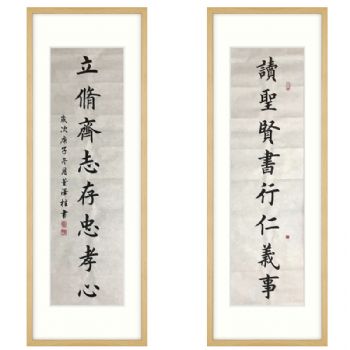 讀聖賢書行仁義事
立脩齊志存忠孝心
歲次庚子冬月董澤柱書